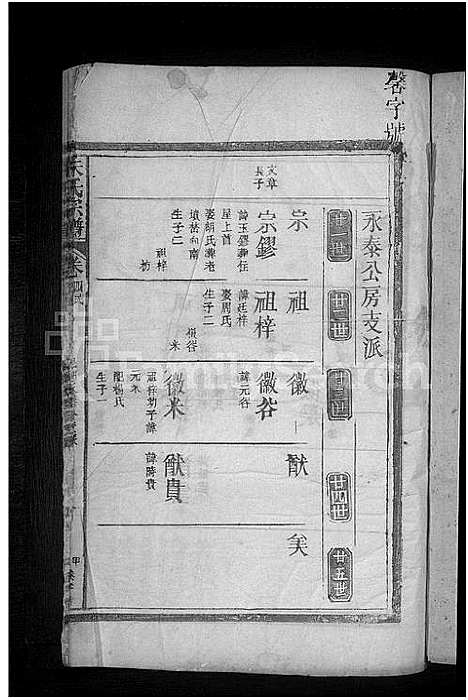 馨字號
永泰公房支派
廿一世
廿二世
廿三世
廿四世
廿五世
宗
祖
徽
猷
矣
文章
長子
宗鏐
諱玉鏐葬在
屋上首
娶胡氏葬老
墳苔向南
生子二
祖梓
祖梓
諱廷梓
娶周氏
生子二
徽谷
米
徽谷
諱元谷
徽米
祖梓幼子諱
元米
配楊氏
生子一
猷貴
諱時貴
朱氏宗譜